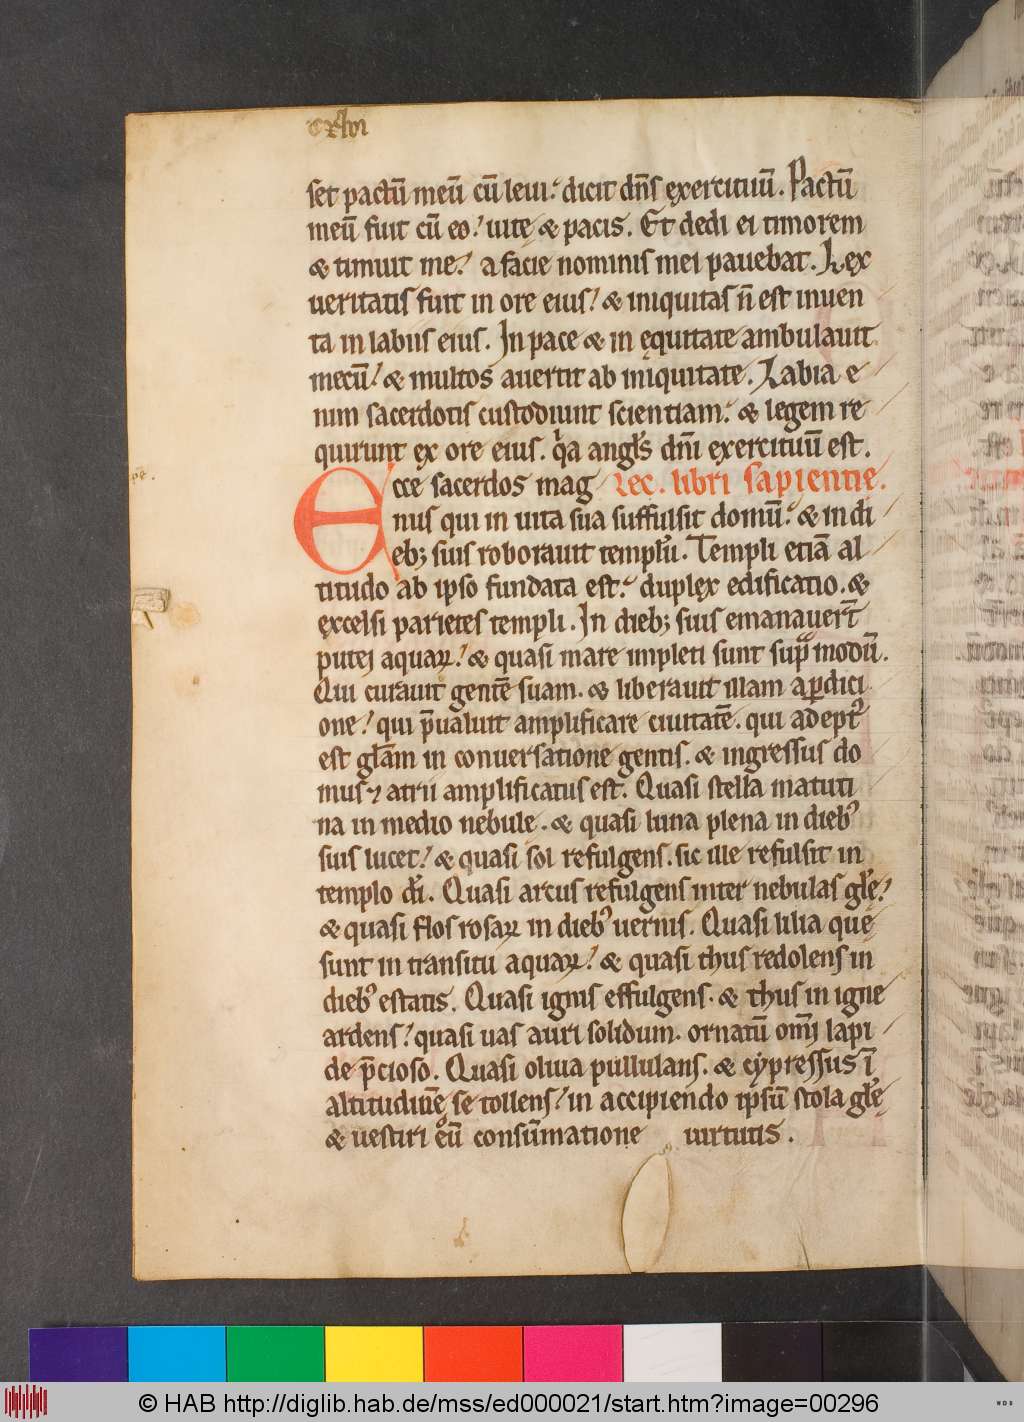 cxlvi
set pactū meū cū leui. dicit dn̄s exercituū. Pactū
meū fuit cū eo. uite & pacis. Et dedi ei timorem
& timuit me. a facie nominis mei pauebat. Lex
ueritatis fuit in ore eius. & iniquitas n̄ est inuen
ta in labiis eius. In pace & in ęquitate ambulauit
mecū. & multos auertit ab iniquitate. Labia e
nim sacerdotis custodiunt scientiam. & legem re
quirunt ex ore eius. qͥa angl̄s dn̄i exercituū est.
Ecce sacerdos mag Lec. libri sapientie.
nus qui in uita sua suffulsit domū. & in di
eb; suis roborauit templū. Templi etiā al
titudo ab ipso fundata est. duplex edificatio. &
excelsi parietes templi. In dieb; suis emanauer̄t
putei aquaꝝ. & quasi mare impleti sunt supͣ modū.
Qui curauit gentē suam. & liberauit illam a ꝑdici
one. qui p̄ualuit amplificare ciuitatē. qui adeptꝰ
est gl̄am in conuersatione gentis. & ingressus do
mus ⁊ atrii amplificatus est. Quasi stella matuti
na in medio nebule. & quasi luna plena in diebꝰ
suis lucet. & quasi sol refulgens. sic ille refulsit in
templo dī. Quasi arcus refulgens inter nebulas gl̄e.
& quasi flos rosaꝝ in diebꝰ uernis. Quasi lilia que
sunt in transitu aquaꝝ. & quasi thus redolens in
diebꝰ estatis. Quasi ignis effulgens. & thus in igne
ardens. quasi uas auri solidum. ornatū om̄i lapi
de p̄cioso. Quasi oliua pullulans. & cypressus ī
altitudinē se tollens. in accipiendo ipsū stola gl̄e
& uestiri eū consūmatione uirtutis.
© HAB http://diglib.hab.de/mss/ed000021/start.htm?image=00296